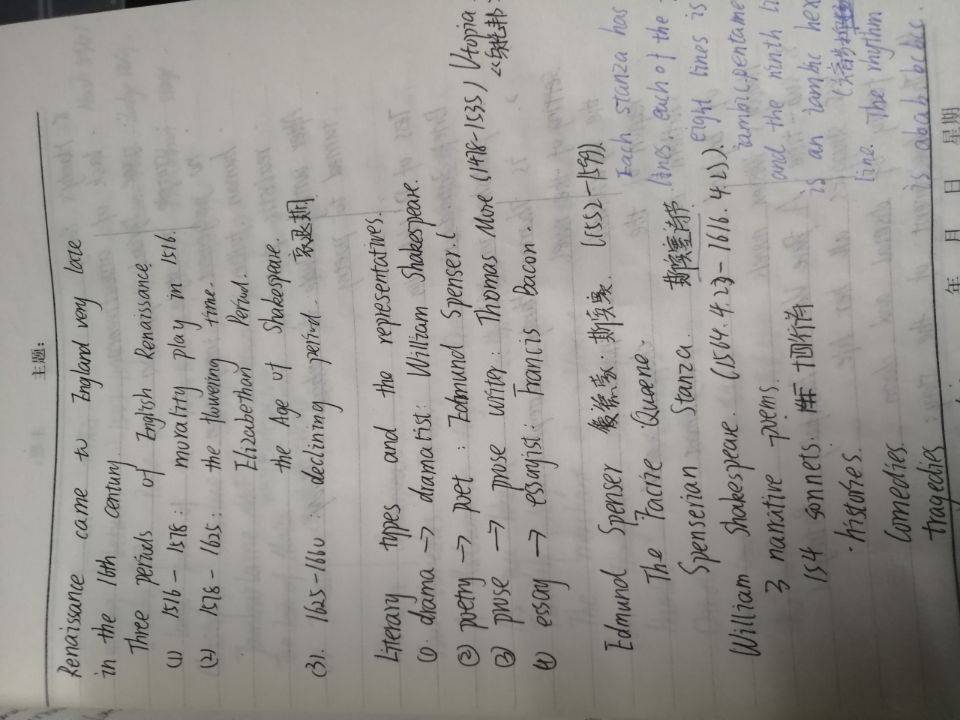 主题:
Renaissance came to England very late
in the 16th century.
Three periods of English Renaissance.
(1) 1516-1578: morality play in 1516.
(2) 1578-1625: the flowering time.
Elizabethan Period.
the Age of Shakespeare.
(3). 1625-1660: declining period. 衰退期
Literary types and the representatives.
① drama → dramatist: William Shakespeare.
② poetry → poet: Edmund Spenser. (
③ prose → prose writer: Thomas More (1478-1535) Utopia.
《乌托邦》
④ essay → essayist: Francis Bacon.
Edmund Spenser 埃德蒙·斯宾塞. (1552-1599)
The Faerie Queene.
Spenserian Stanza. 斯宾塞诗节
Each stanza has
lines, each of the
eight lines is
iambic pentame
and the ninth li
is an iambic hex
line. The rhythm
is abab bcbc c.
William Shakespeare. (1564.4.23-1616.4.23).
3 narrative poems.
154 sonnets. 十四行诗
·histories.
comedies.
tragedies
年 月 日 星期